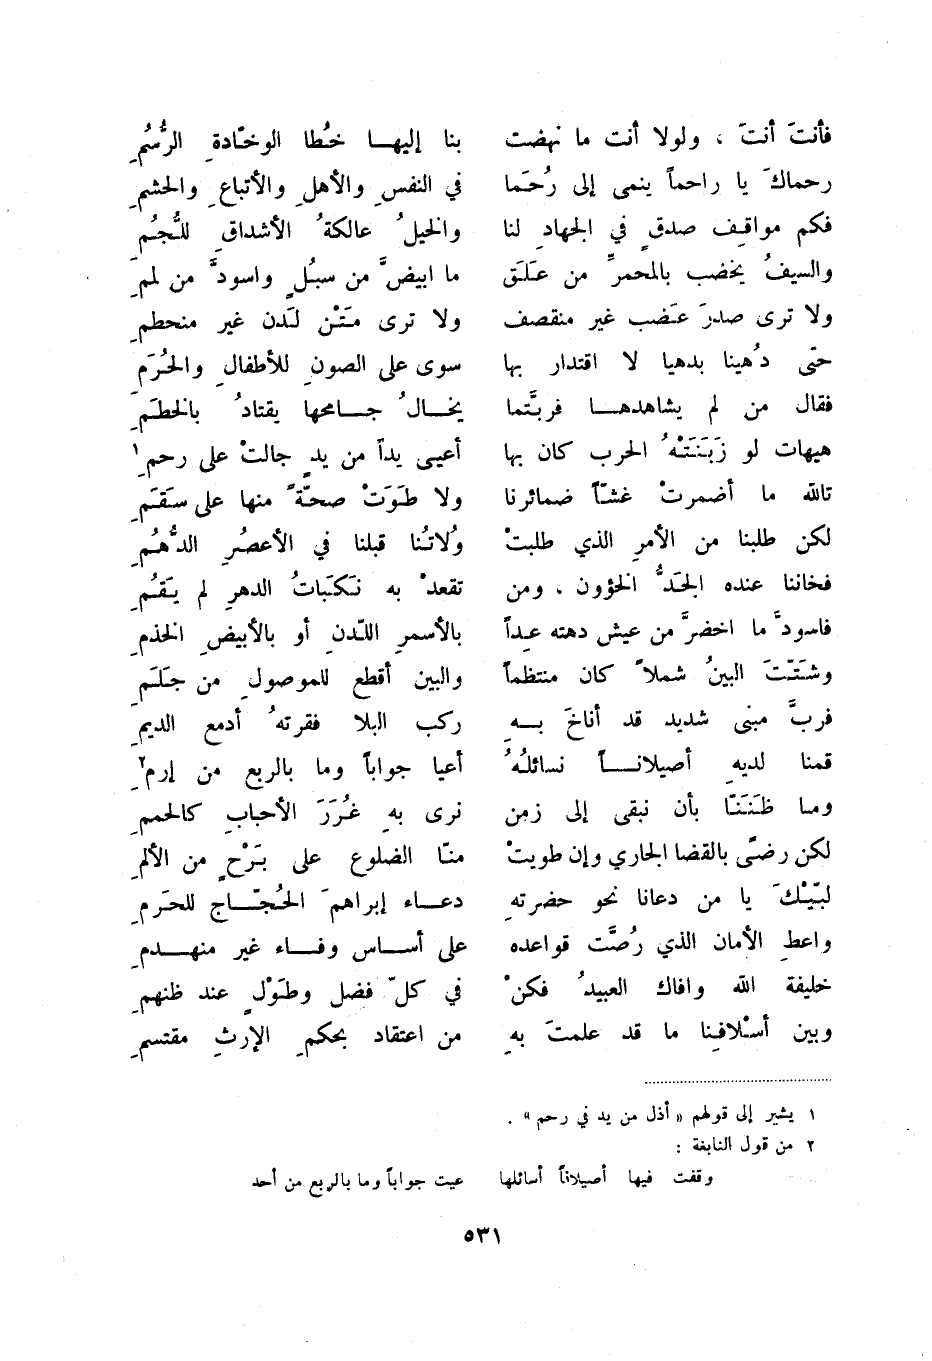 فأنتَ أنتَ ، ولولا أنت ما نهضت بنا إليهـا خُطا الوخّادةِ الرُّسُمِ
رحماكَ يا راحماً ينمى إلى رُحَما في النفسِ والأهلِ والأتباعِ والحشمِ
فكم مواقف صدقٍ في الجهادِ لنا والخيلُ عالكةُ الأشداقِ للُّجُمِ
والسيفُ يخضب بالمحمرِّ من عَلَق ما ابيضَّ من سبُلٍ واسودَّ من لممِ
ولا ترى صدرَ عَضب غير منقصف ولا ترى مَتْن لَدن غير منحطمِ
حتّى دُهينا بدهيا لا اقتدار بها سوى على الصونِ للأطفالِ والحُرَمِ
فقال من لم يشاهدهـا فربَّتما يخـالُ جـامحها يقتادُ بالخطَمِ
هيهات لو زَبَنَتْهُ الحرب كان بها أعيى يداً من يدٍ جالتْ على رحمِ١
تالله ما أضمرتْ غشّاً ضمائرنا ولا طَوَتْ صحّةً منها على سَقَمِ
لكن طلبنا من الأمرِ الذي طلبتْ وُلاتُنا قبلنا في الأعصُرِ الدُّهُمِ
فخاننا عنده الجَدُّ الخؤون ، ومن تقعدْ به نَكَبَاتُ الدهرِ لم يَقُمِ
فاسودَّ ما اخضرَّ من عيش دهته عِداً بالأسمرِ اللّدنِ أو بالأبيضِ الخذمِ
وشَتّتَ البينُ شملاً كان منتظماً والبين أقطع للموصولِ من جَلَمِ
فربَّ مبنى شديد قد أناخَ بـهِ ركب البلا فقرتهُ أدمع الديمِ
قمنا لديهِ أصيلانـاً نسائلُهُ أعيا جواباً وما بالربع من إرمِ٢
ومـا ظَنَنّا بأن نبقى إلى زمن نرى بهِ غُرَرَ الأحبابِ كالحممِ
لكن رضىً بالقضا الجاري وإن طويتْ منّا الضلوع على بَرْحٍ من الألمِ
لبّيْكَ يا من دعانا نحو حضرتهِ دعـاء إبراهمَ الحُجّـاج للحرَمِ
واعطِ الأمان الذي رُصَّت قواعده على أسـاس وفـاء غير منهـدمِ
خليفة الله وافاك العبيدُ فكنْ في كلّ فضل وطَوْلٍ عند ظنهمِ
وبين أسْلافِنا ما قد علمتَ بهِ من اعتقاد بحكمِ الإرثِ مقتسمِ
١ يشير إلى قولهم « أذل من يد في رحم » .
٢ من قول النابغة :
وقفت فيها أصيلاناً أسائلها عيت جواباً وما بالربع من أحد
٥٣١